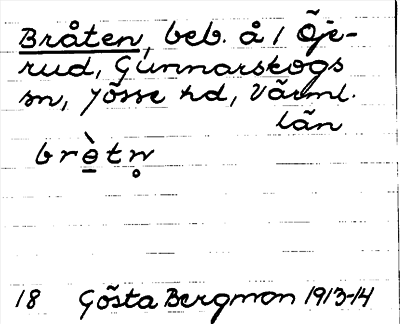 Bråten, beb. å 1 Öje-
rud, Gunnarskogs
sn, Jösse hd, Värml.
län
brè̱tn̥
18 Gösta Bergman 1913-14